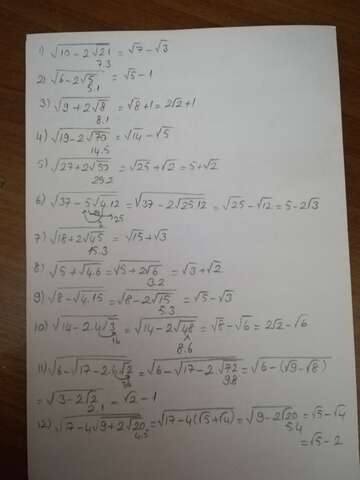 1) √10-2√21 = √7-√3
7.3
2) √6-2√5 = √5-1
5.1
3) √9+2√8 = √8+1 = 2√2+1
8.1
4) √19-2√70 = √14-√5
14.5
5) √27+2√50 = √25+√2 = 5+√2
25.2
6) √37-5√4.12 = √37-2√25.12 = √25-√12 = 5-2√3
25
7) √18+2√45 = √15+√3
15.3
8) √5+√4.6 = √5+2√6 = √3+√2
3.2
9) √8-√4.15 = √8-2√15 = √5-√3
5.3
10) √14-2.4√3 = √14-2√48 = √8-√6 = 2√2-√6
16
8.6
11) √6-√17-2.6√2 = √6-√17-2.√72 = √6-(√9-√8)
36
9.8
= √3-2√2 = √2-1
2.1
12) √17-4√9+2√20 = √17-4(√5+√4) = √9-2√20 = √5-√4
4.5
5.4
= √5-2